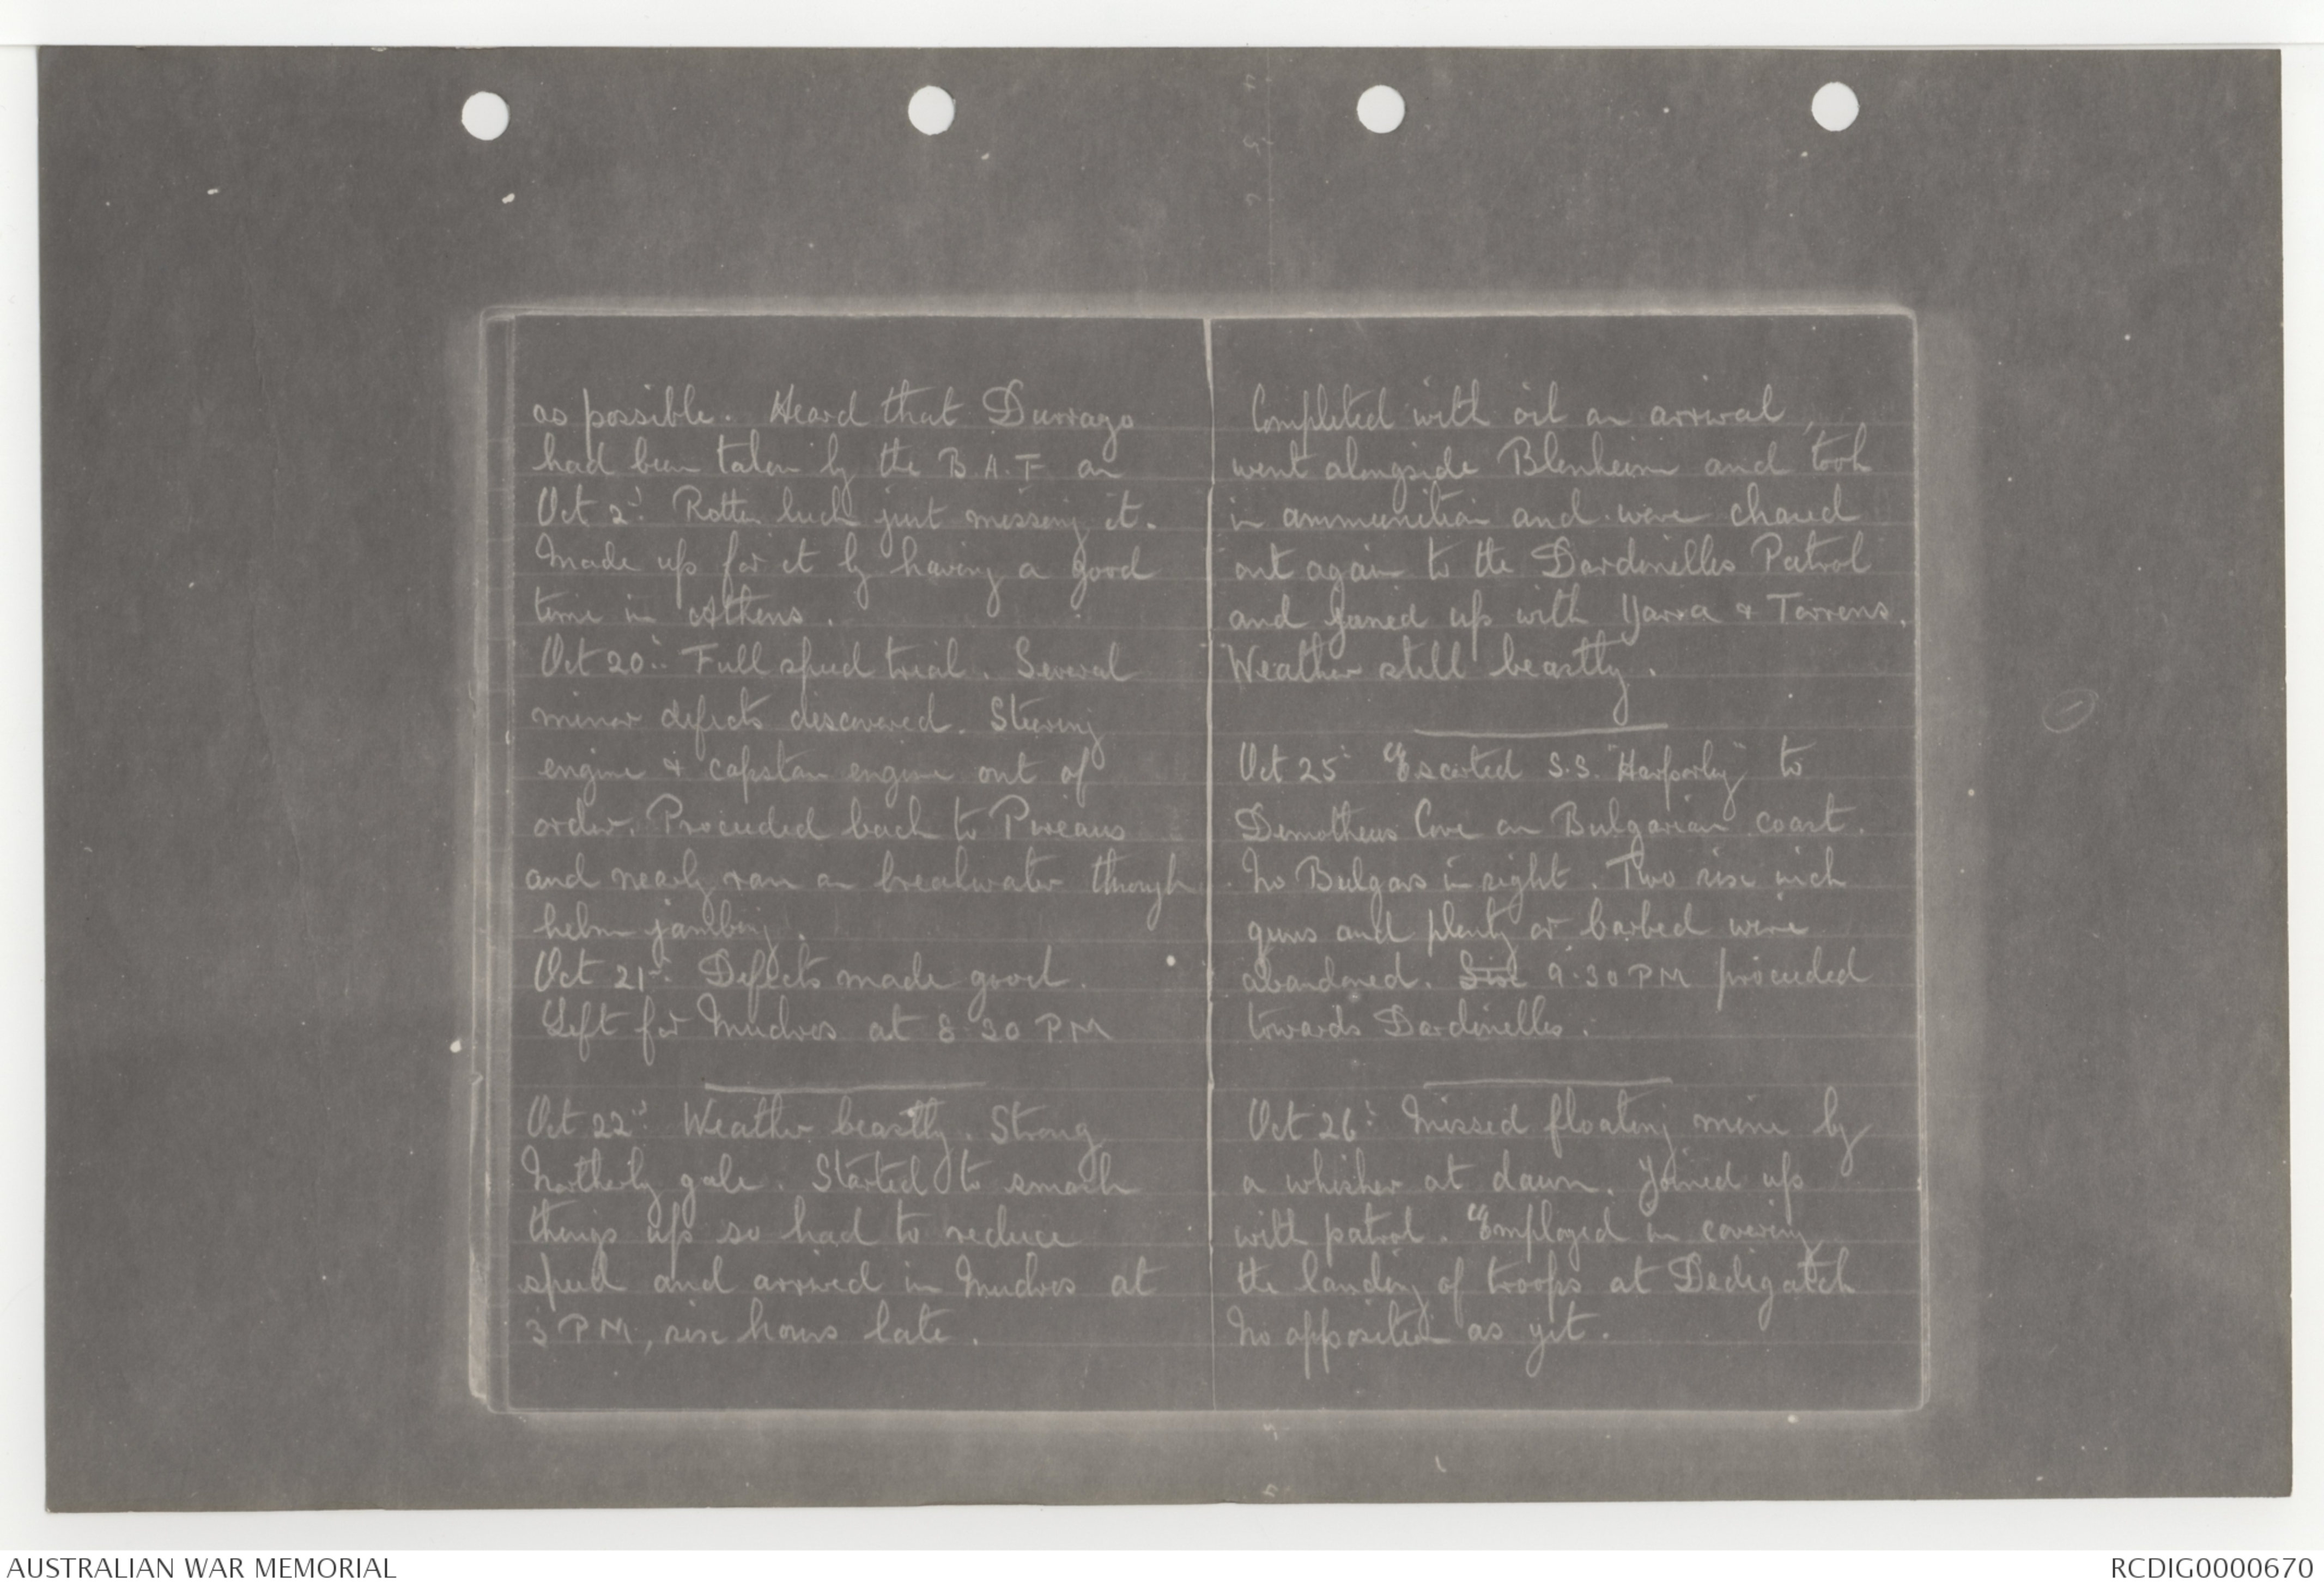 as possible. Heard that Durrazo
had been taken by the B.A.F. on
Oct 2nd. Rotten luck just missing it.
Made up for it by having a good
time in Athens.
Oct 20th. Full speed trial. Several
minor defects discovered. Steering
engine & capstan engine out of
order. Proceeded back to Pireaus
and nearly ran on breakwater through
helm jambing.
Oct 21st. Defects made good.
Left for Mudros at 8.30 PM
Oct 22nd. Weather beastly. Strong
Northerly gale. Started to smash
things up so had to reduce
speed and arrived in Mudros at
3 PM, six hours late.
Completed with oil on arrival,
went alongside Blenheim and took
in ammunition and were chased
out again to the Dardinelles Patrol
and joined up with Yarra & Torrens.
Weather still beastly.
Oct 25th Escorted S.S. "Harparley" to
Cove on Bulgarian coast.
No Bulgars in sight. Two six inch
guns and plenty or barbed wire
abandoned. 9.30 PM proceeded
towards Dardinelles.
Oct 26th Missed floating mine by
a whisker at dawn. Joined up
with patrol. Employed in covering
the landing of troops at Dedigatch
No opposition as yet.
AUSTRALIAN WAR MEMORIAL
RCDIG0000670